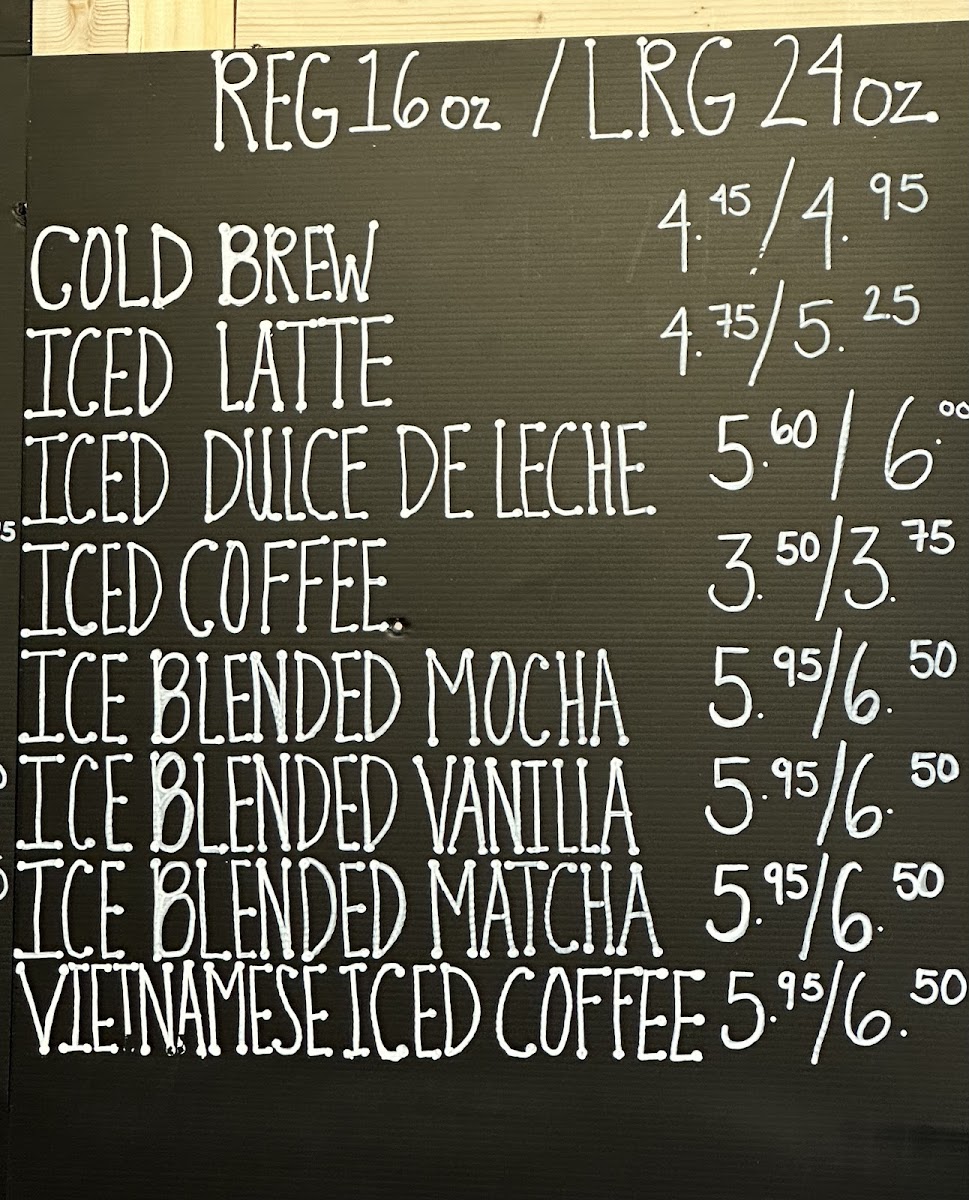 REG 16 oz / LRG 24 oz
COLD BREW 4.45/4.95
ICED LATTE 4.75/5.25
ICED DULCE DE LECHE 5.60/6.00
ICED COFFEE 3.50/3.75
ICE BLENDED MOCHA 5.95/6.50
ICE BLENDED VANILLA 5.95/6.50
ICE BLENDED MATCHA 5.95/6.50
VIETNAMESE ICED COFFEE 5.95/6.50